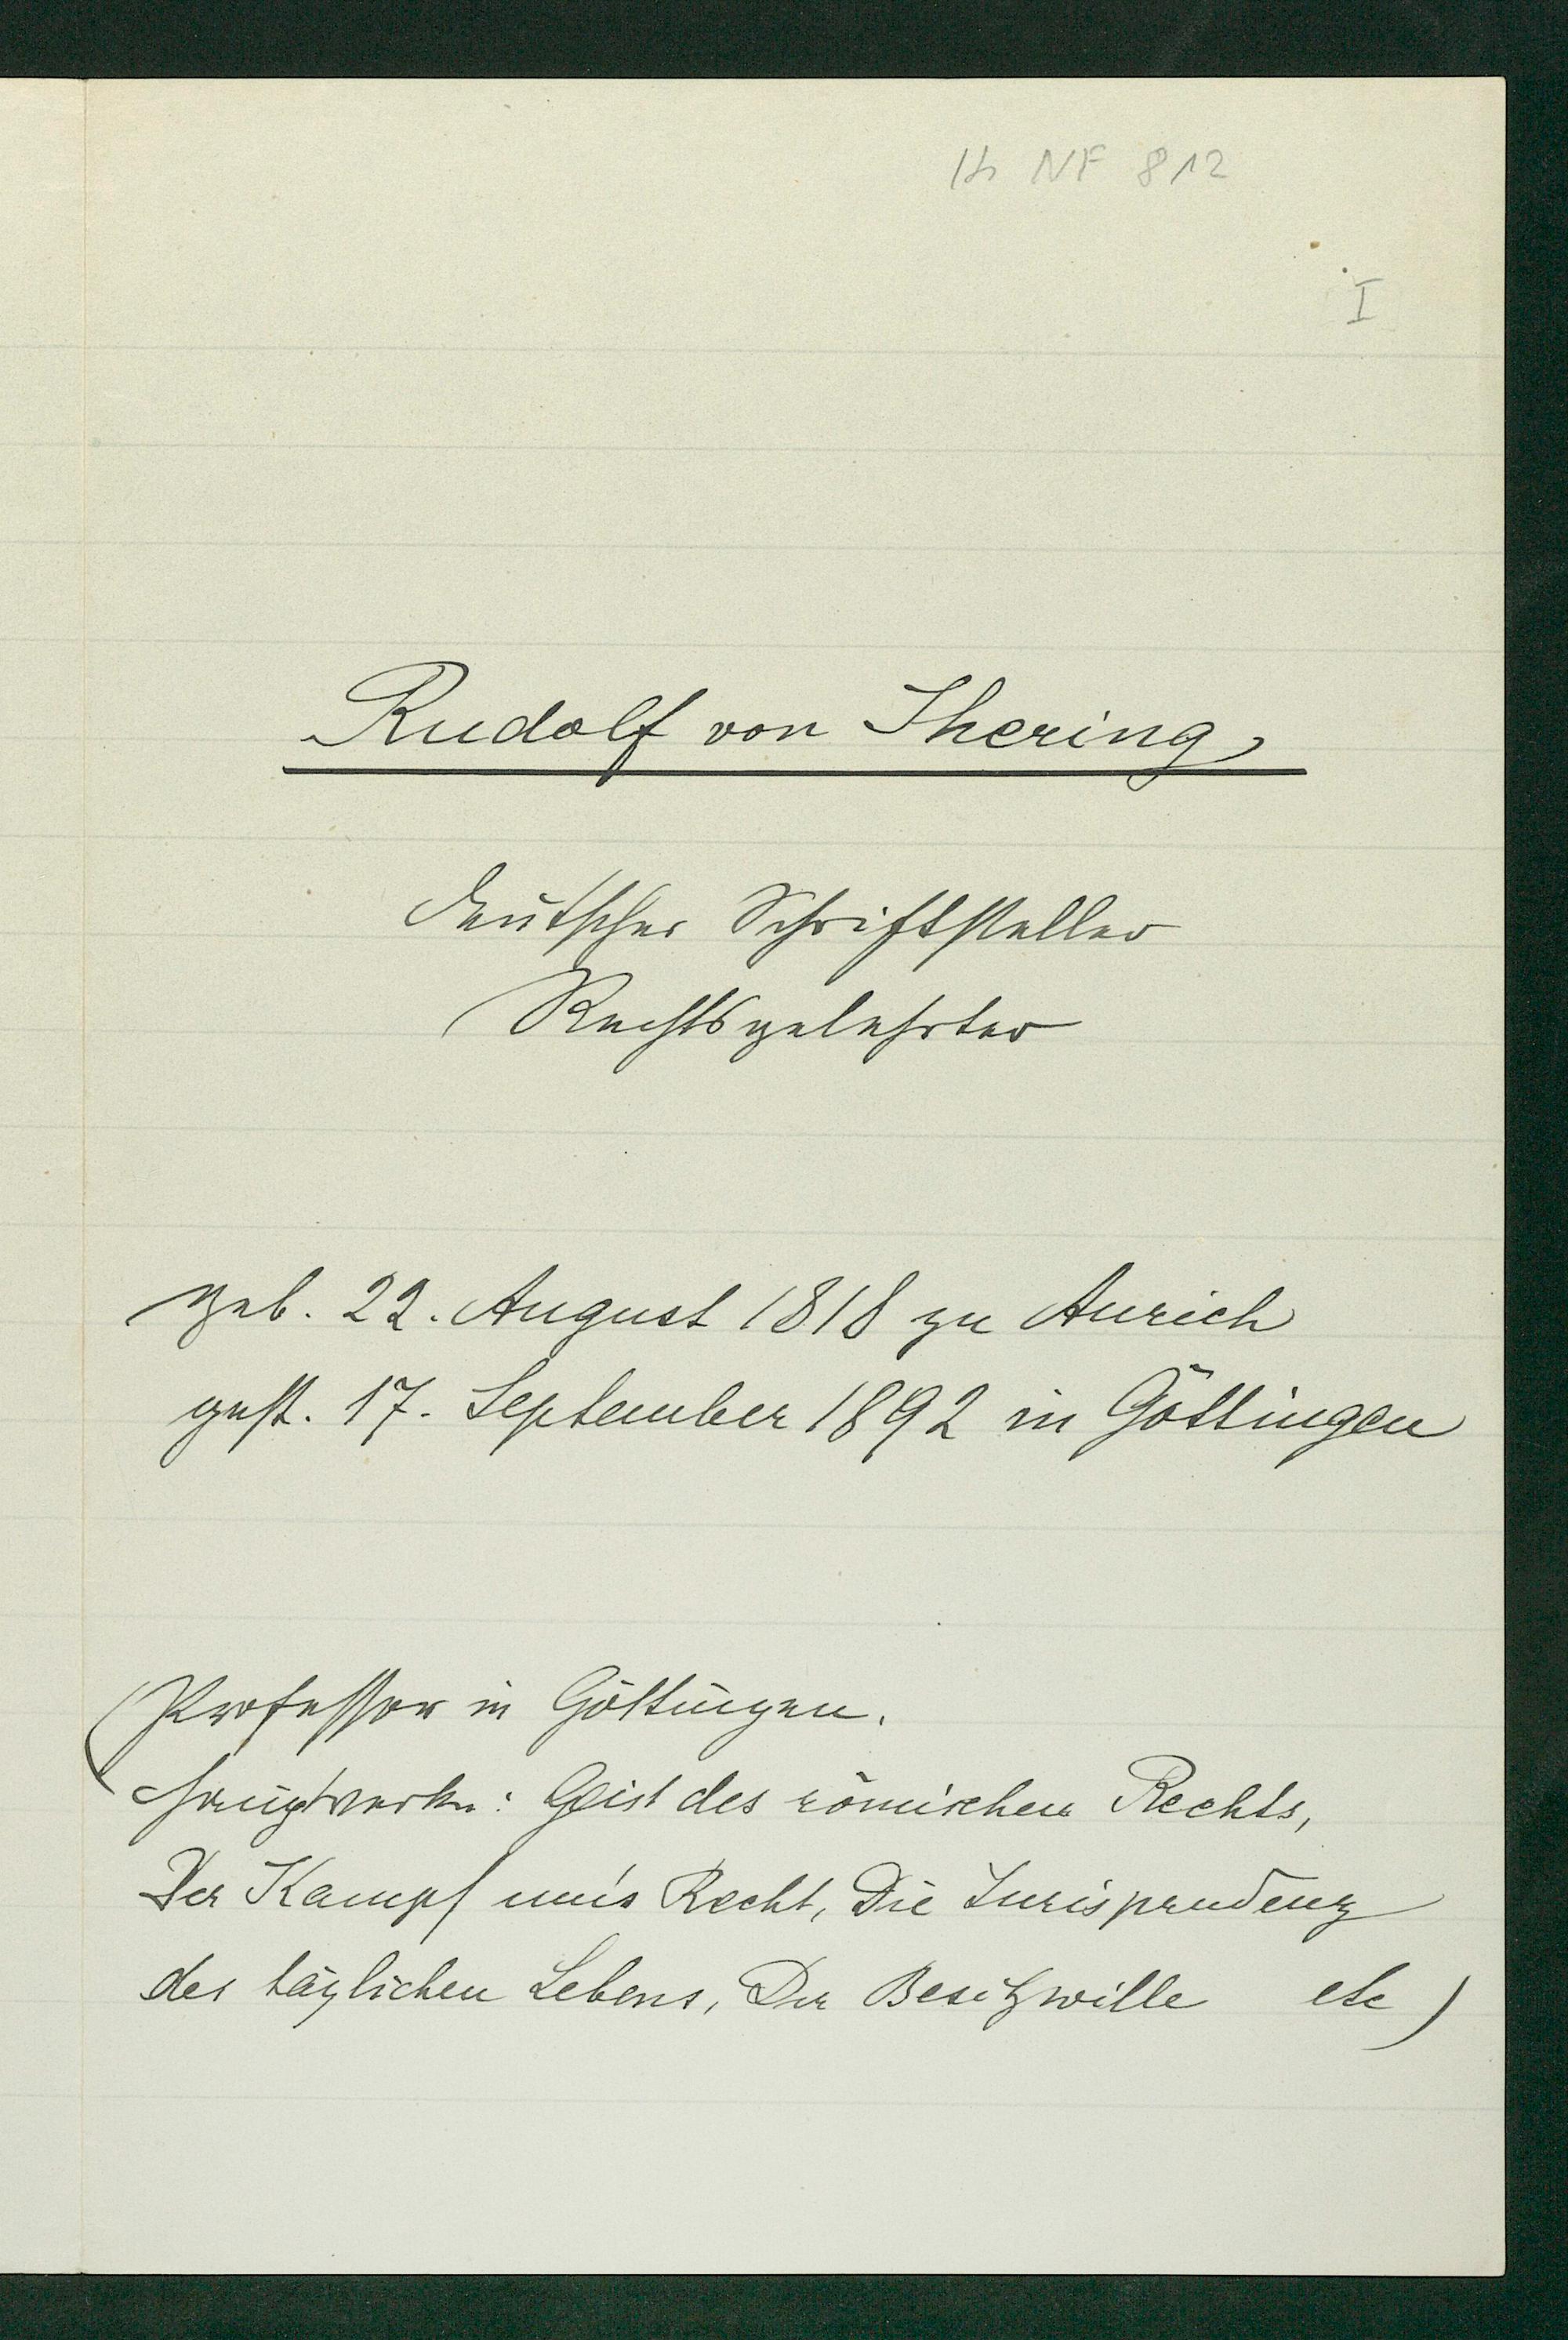 Hs NF 812
I
Rudolf von Ihering,
deutscher Schriftsteller
Rechtsgelehrter
geb. 22. August 1818 zu Aurich
gest. 17. September 1892 in Göttingen
(Professor in Göttingen.
Hauptwerke: Geist des römischen Rechts,
Der Kampf um's Recht, Die Jurisprudenz
des täglichen Lebens, Der Besitzwille etc)